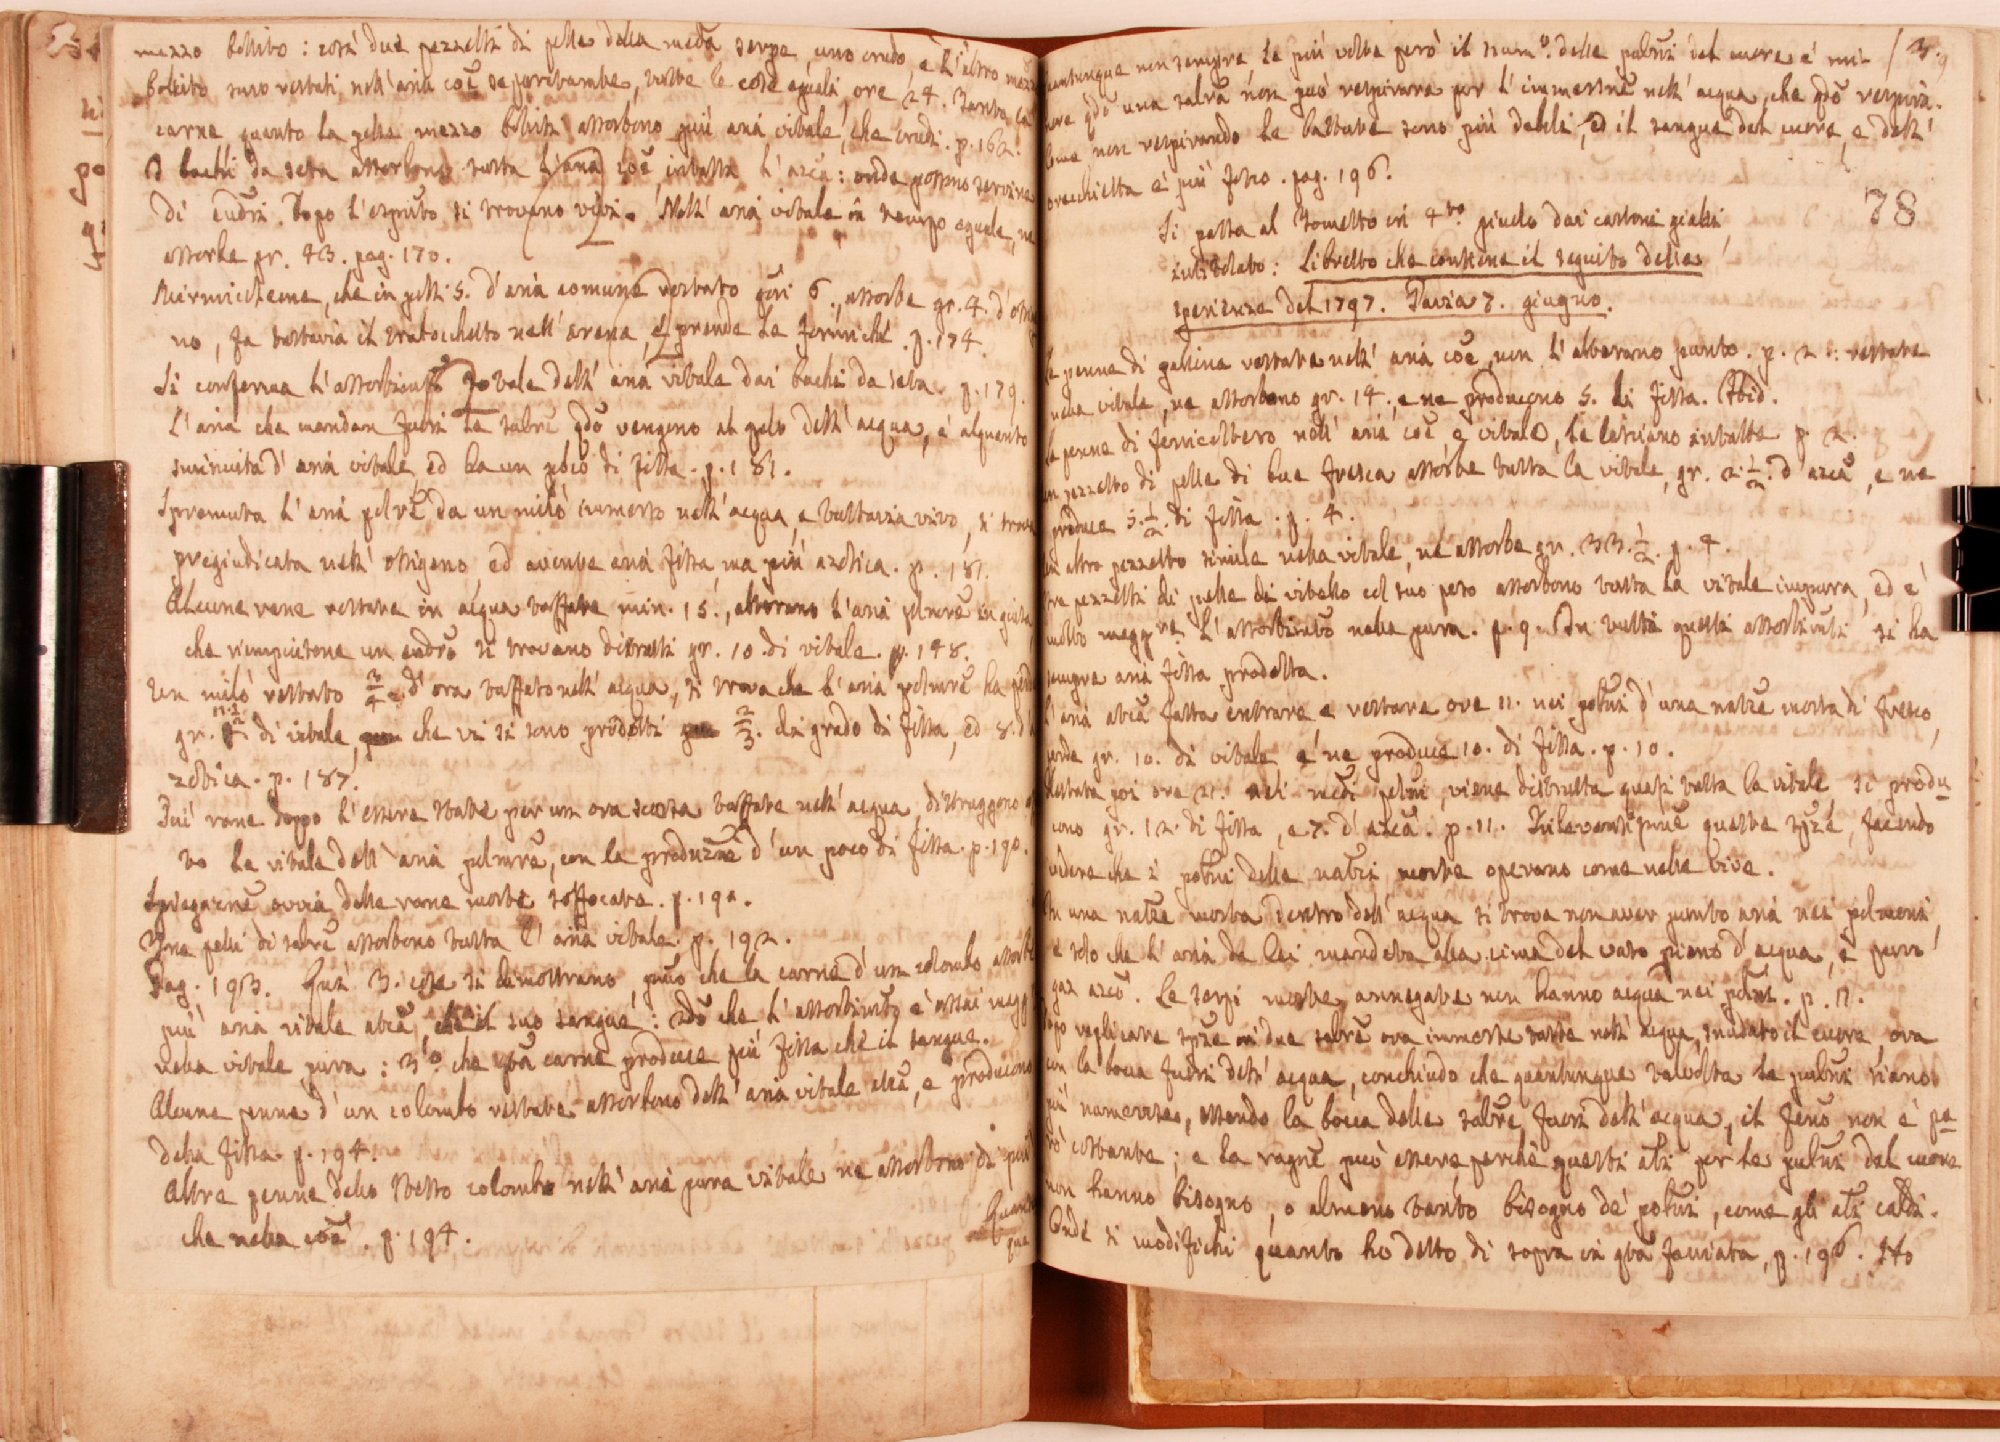 mezzo bollito: così due pezzetti di pelle della meda serpe, uno crudo, e l'altro mezzo
bollito sono restati nell'aria coe separatamente, tutte le cose eguali, ore 24. Tanto la
carne quanto la pelle mezzo bollita assorbono più aria vitale, che crudi. p. 162.
I bachi da seta assorbono tutta l'aria coe, intatta l'azca: onde possono servire
di eudri. Dopo l'esprito si trovano vivi. Nell'aria vitale in tempo eguale, ne
assorbe gr. 43. pag. 170.
Mirmicoleone, che in polli 5. d'aria comune restato giri 6. assorbe gr. 4. d'ossi
no, fa tuttavia il trabocchetto nell'arena, e prende le formiche. p. 174.
Si conferma l'assorbimto totale dell'aria vitale dai bachi da seta. p. 179.
L'aria che mandan fuori le salre qdo vengono al gelo dell'acqua, è alquanto
sminuita d'aria vitale, ed ha un poco di fissa. p. 181.
Spremuta l'aria polre da un milò immerso nell'acqua, e tuttavia vivo, si trova
pregiudicata nell'ossigeno, ed avente aria fissa, ma più azotica. p. 181.
Alcune rane restate in acqua tuffate min. 15.,
che riempiutone un eudro si trovano distrutti gr. 10. di vitale. p. 148.
Un milò restato 3/4 d'ora tuffato nell'acqua, si trova che l'aria polmre ha perd
gr. 11.1/2 di vitale, che vi si sono prodotti 2/3. di grado di fissa, ed 8. d'a
zotica. p. 187.
Più rane doppo l'essere state per un ora scorsa tuffate nell'acqua, distruggono
to la vitale dell'aria polmre, con la produzne d'un poco di fissa. p. 190.
Spiegazne ovvia delle rane morte soffocate. p. 190.
Una pelli di salre assorbono tutta l'aria vitale. p. 192.
Pag. 193. Qui 3. cose si dimostrano, pmo che la carne d'un colombo assorbe
più aria vitale atca, che il suo sangue: 2do che l'assorbimto è assai magg
nella vitale pura: 3.o che qta carne produce più fissa che il sangue.
Alcune penne d'un colombo restate assorbono dell'aria vitale atca, e producono
della fissa. p. 194.
Altre penne dello stesso colombo nell'aria pura vitale ne assorbono di più
che nella coe. p. 194.
Quan
que
3.9
quantunque non sempre le più volte però il num.o delle pulsni del cuore è mi-
nore qdo una salra non può respirare per l'immersne nell'acqua, che qdo respira.
Come non respirando le battute sono più debili, ed il sangue del cuore, e dell'
orecchietta è più fosco. pag. 196.
78
Si passa al tometto in 4to piccolo dai cartoni gialli
intitolato: Libretto che contiene il seguito delle
sperienze del 1797. Pavia 7. giugno.
Le penne di gallina restate nell'aria coe, non l'alterano punto. p. 2.: restate
nella vitale, ne assorbono gr. 14., e ne producono 5. di fissa. Ibid.
Le penne di fenicottero nell'aria coe e vitale, le lasciano intatte. p. 2.
Un pezzetto di pelle di bue fresca assorbe tutta la vitale, gr. 2.1/2. d'azca, e ne
produce 5.1/2. di fissa. p. 4.
Un altro pezzetto simile nella vitale, ne assorbe gr. 33.1/2. p. 4.
Tre pezzetti di pelle di vitello col suo pelo assorbono tutta la vitale impura, ed è
molto maggre l'assorbimto nella pura. p. 9. In tutti questi assorbimti si ha
sempre aria fissa prodotta.
L'aria atca fatta entrare e restare ore 11. nei polmi d'una natre morta di fresco,
perde gr. 10. di vitale e ne produce 10. di fissa. p. 10.
Restata poi ore 21. nei medi polmi, viene distrutta quasi tutta la vitale si produ-
cono gr. 12. di fissa, e 7. d'azca. p. 11. Rilevantissime queste spze, facendo
vedere che i polmi delle natrici morte operano come nelle vive.
In una natre morta dentro dell'acqua si trova non aver punto aria nei polmoni,
e solo che l'aria da lei mandata alla cima del vaso pieno d'acqua, è puro
gaz azco. Le serpi morte annegate non hanno acqua nei polmi. p. 12.
Dopo replicate spze in due salre ora immerse tutte nell'acqua, snudato il cuore, ora
con la bocca fuori dell'acqua, conchiudo che quantunque talvolta le pulsni siano
più numerose, essendo la bocca delle salre fuori dell'acqua, il feno non è pe-
rò costante; e la ragne può essere perchè questi ali per le pulsni del cuore
non hanno bisogno, o almeno tanto bisogno de' polmi, come gli ali caldi.
Onde si modifichi quanto ho detto di sopra in qta facciata, p. 196. Ho